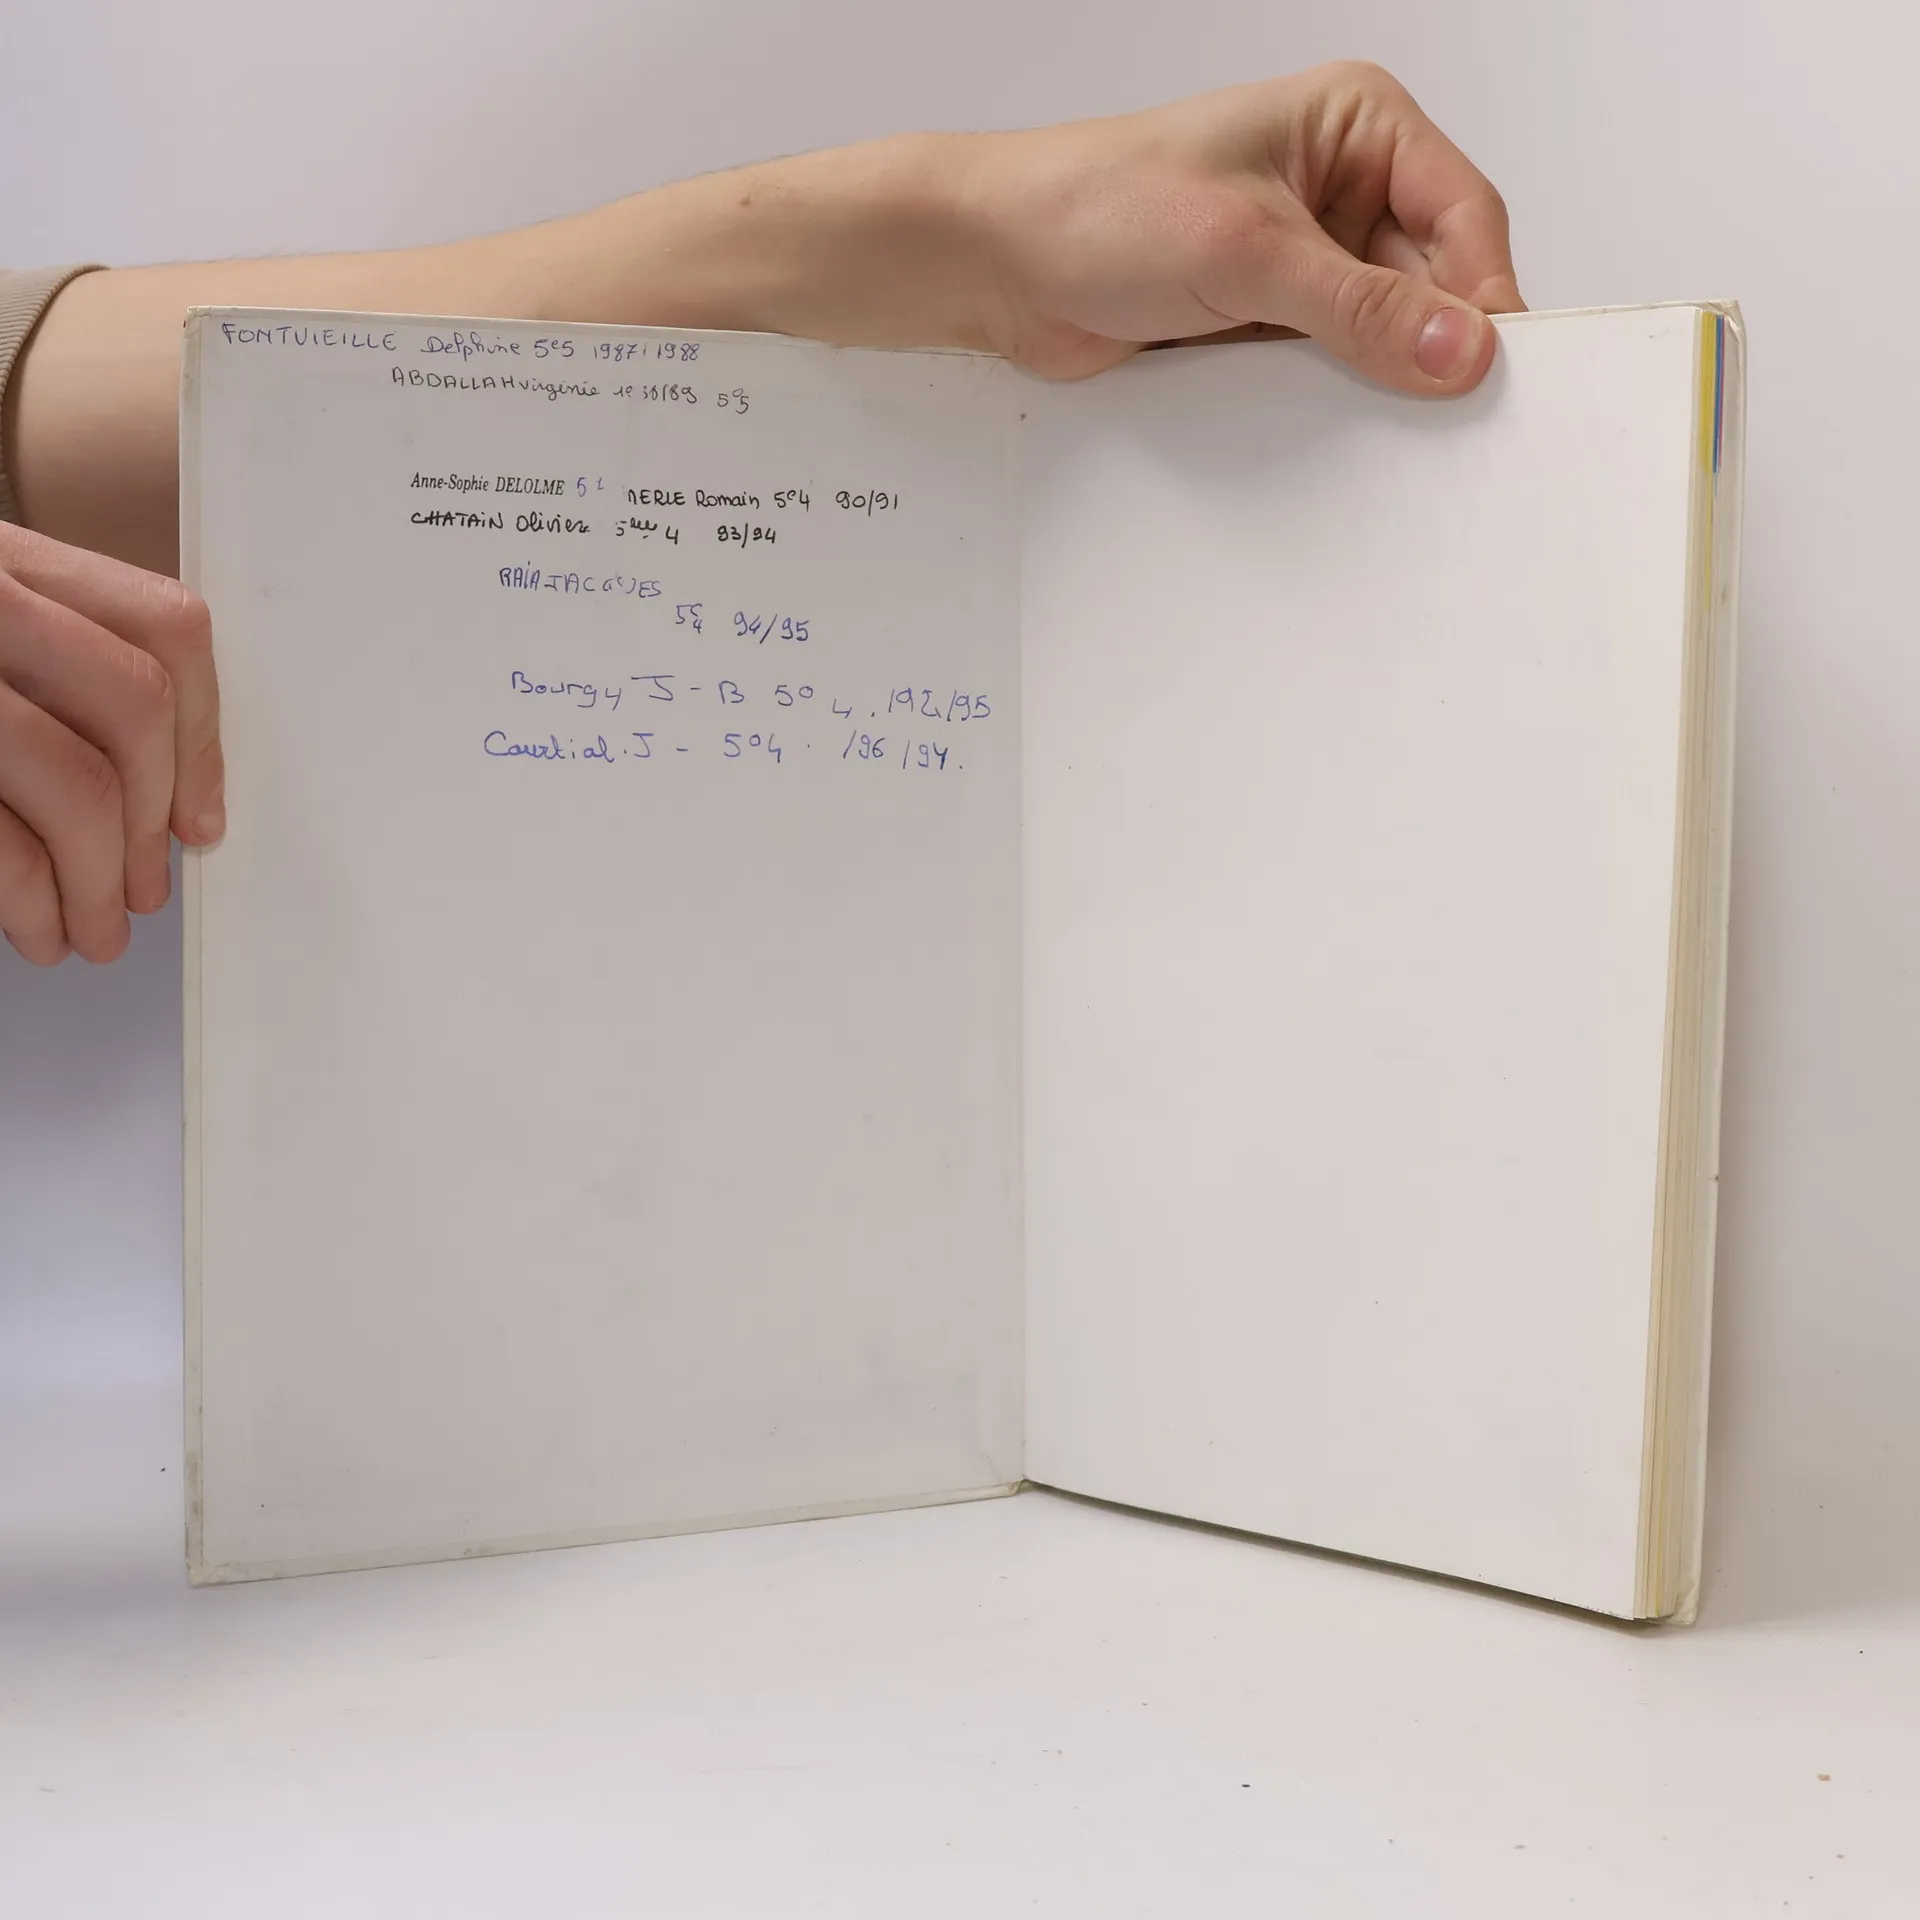 FONTVIEILLE Delphine 5e5 1987/1988
ABDALLAH Virginie 5e5
Anne-Sophie DELOLME 5 1 MERLE Romain 5e4 90/91
CHATAIN Olivier 5ème 4 93/94
RAÏA JACQUES
5e4 94/95
Bourgy J-B 5° 4.
Courtial.J - 5°4. /96